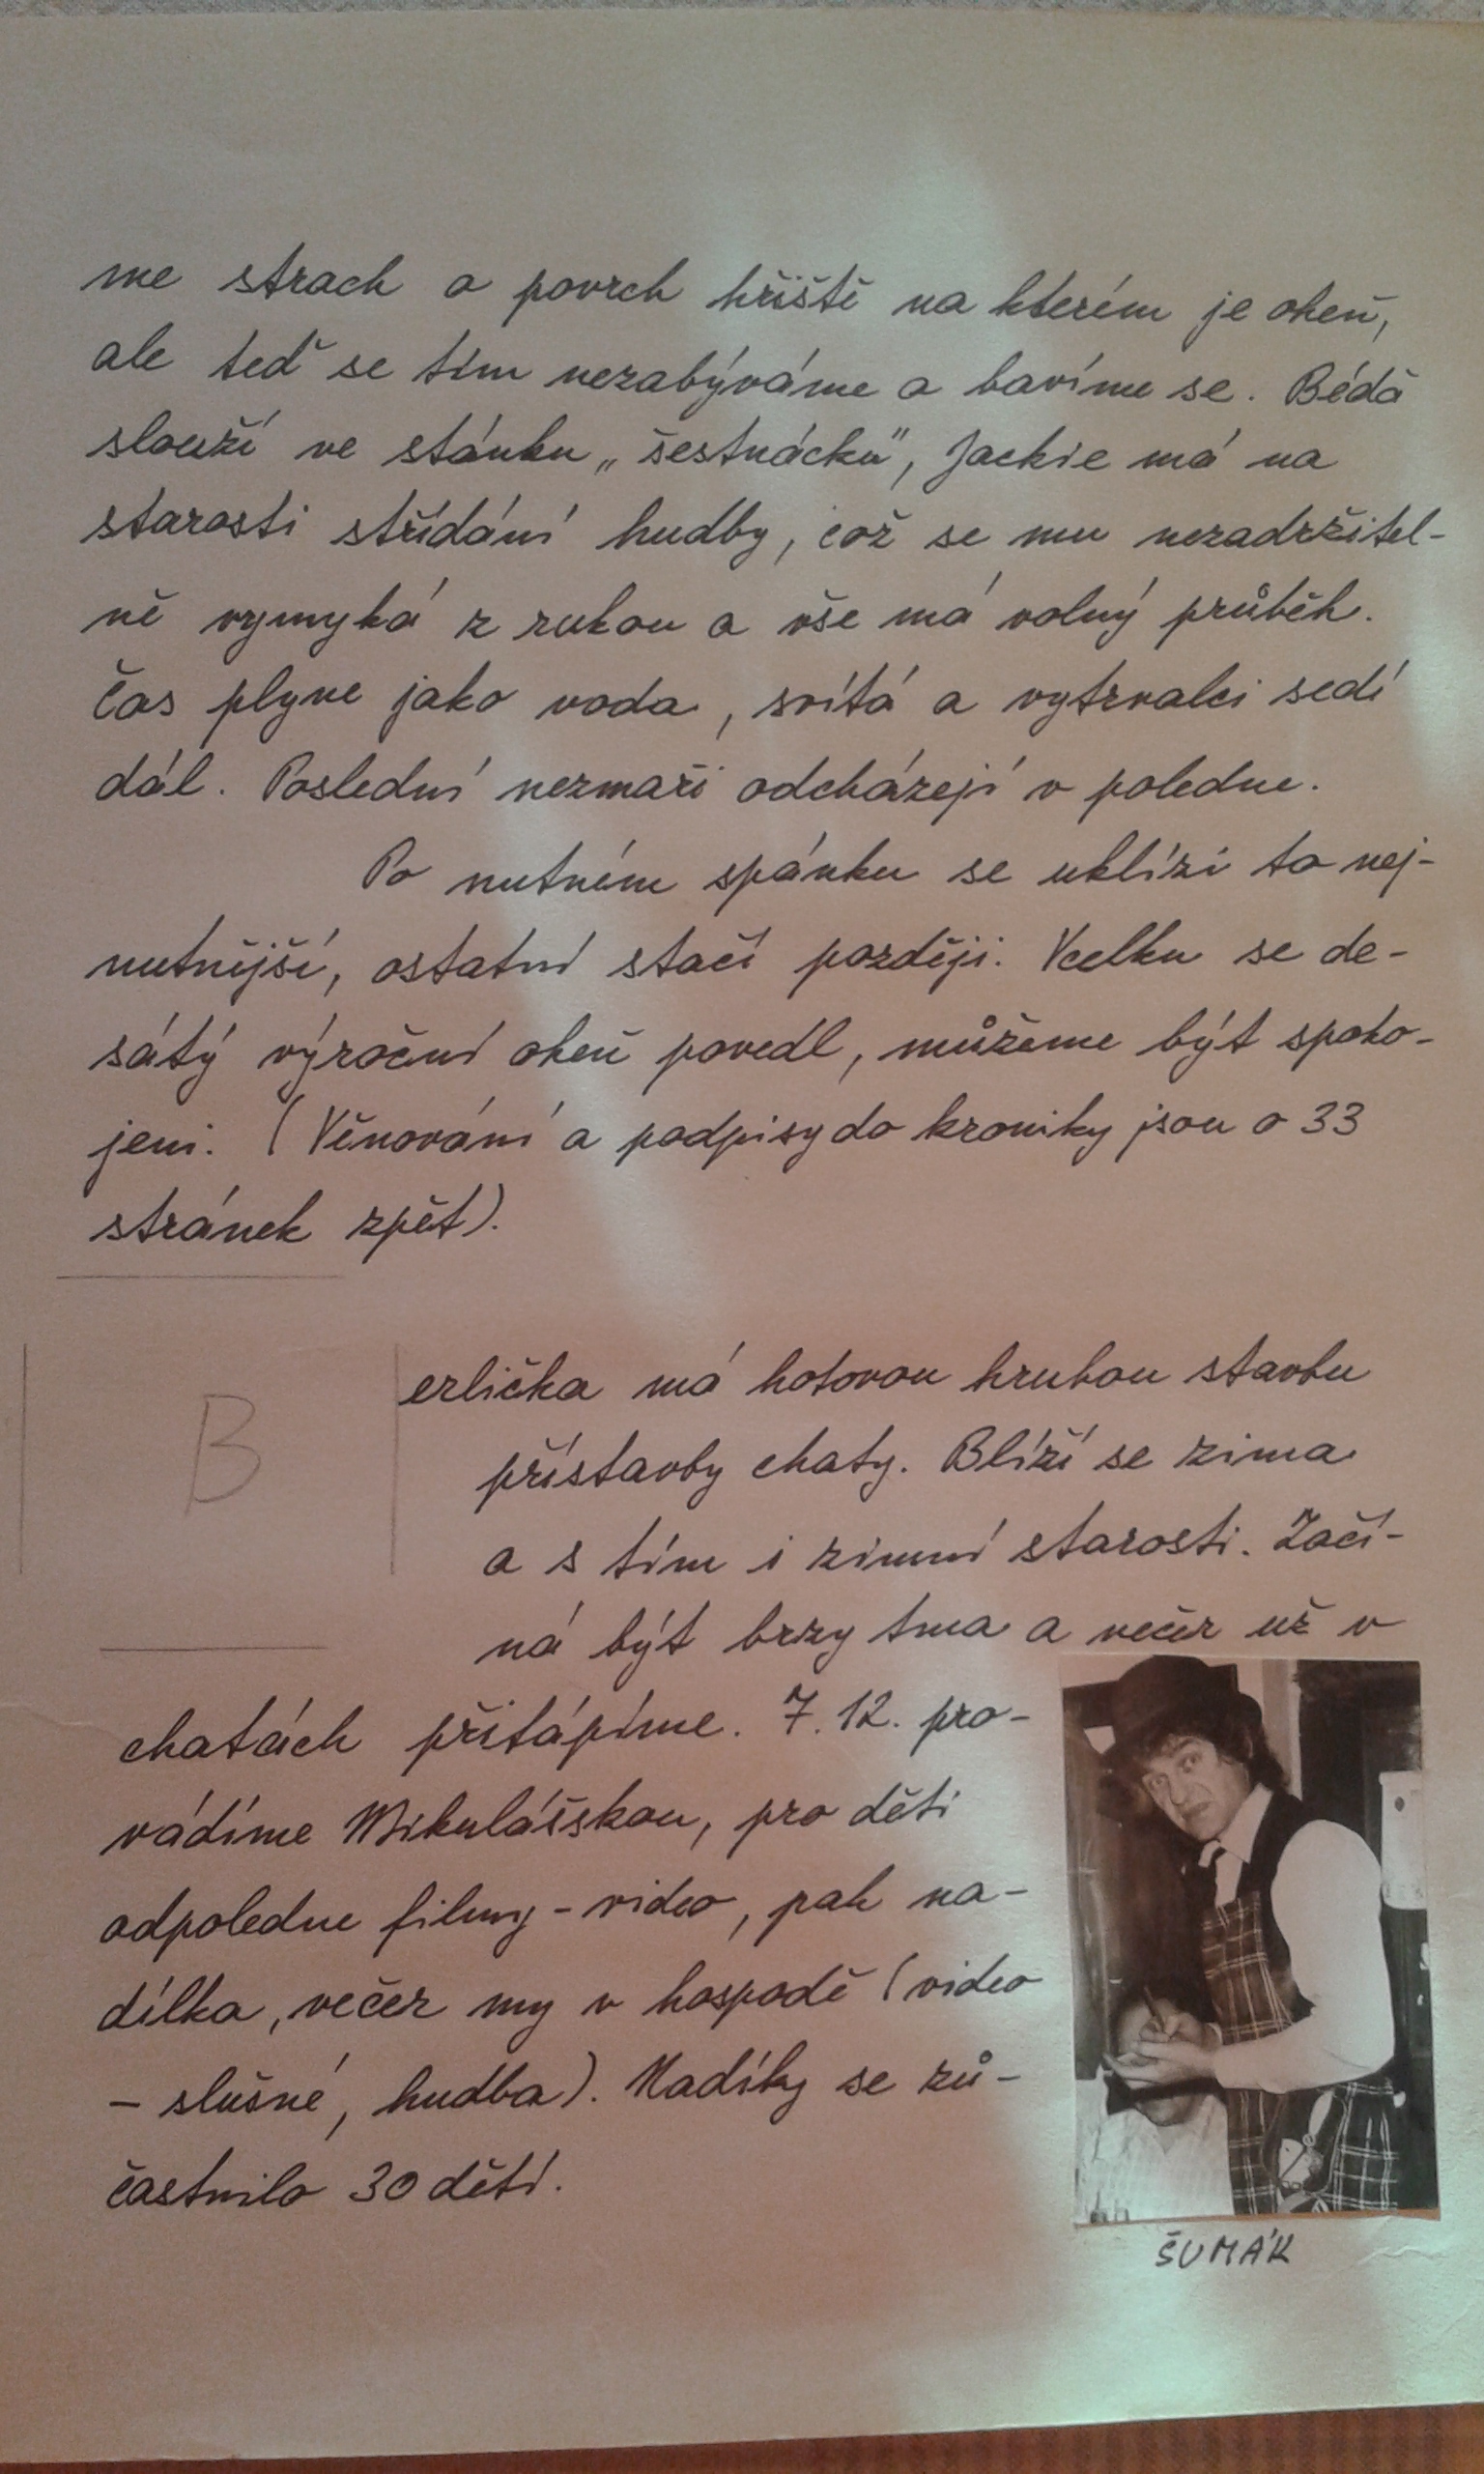 me strach o povrch hřiště na kterém je oheň,
ale teď se tím nezabýváme a bavíme se. Béďa
slouží ve stánku „šestnácků", Jackie má na
starosti střídání hudby, což se mu nezadržitel-
ně vymyká z rukou a vše má volný průběh.
Čas plyne jako voda, svítá a vytrvalci sedí
dál. Poslední nezmaři odcházejí v poledne.
Po nutném spánku se uklízí to nej-
nutnější, ostatní stačí později. Vcelku se de-
sátý výroční oheň povedl, můžeme být spoko-
jeni. (Věnování a podpisy do kroniky jsou o 33
stránek zpět).
B erlička má hotovou hrubou stavbu
přístavby chaty. Blíží se zima
a s tím i zimní starosti. Začí-
ná být brzy tma a večer už v
chatách přitápíme. 7.12. pro-
vádíme Mikulášskou, pro děti
odpoledne filmy - video, pak na-
dílka, večer my v hospodě (video
- slušné, hudba). Nadílky se zú-
častnilo 30 dětí.
ŠUMÁK